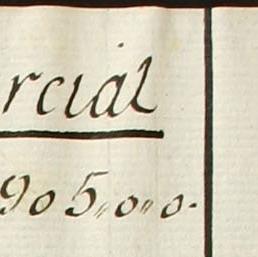 rcial
905,,0,,0.